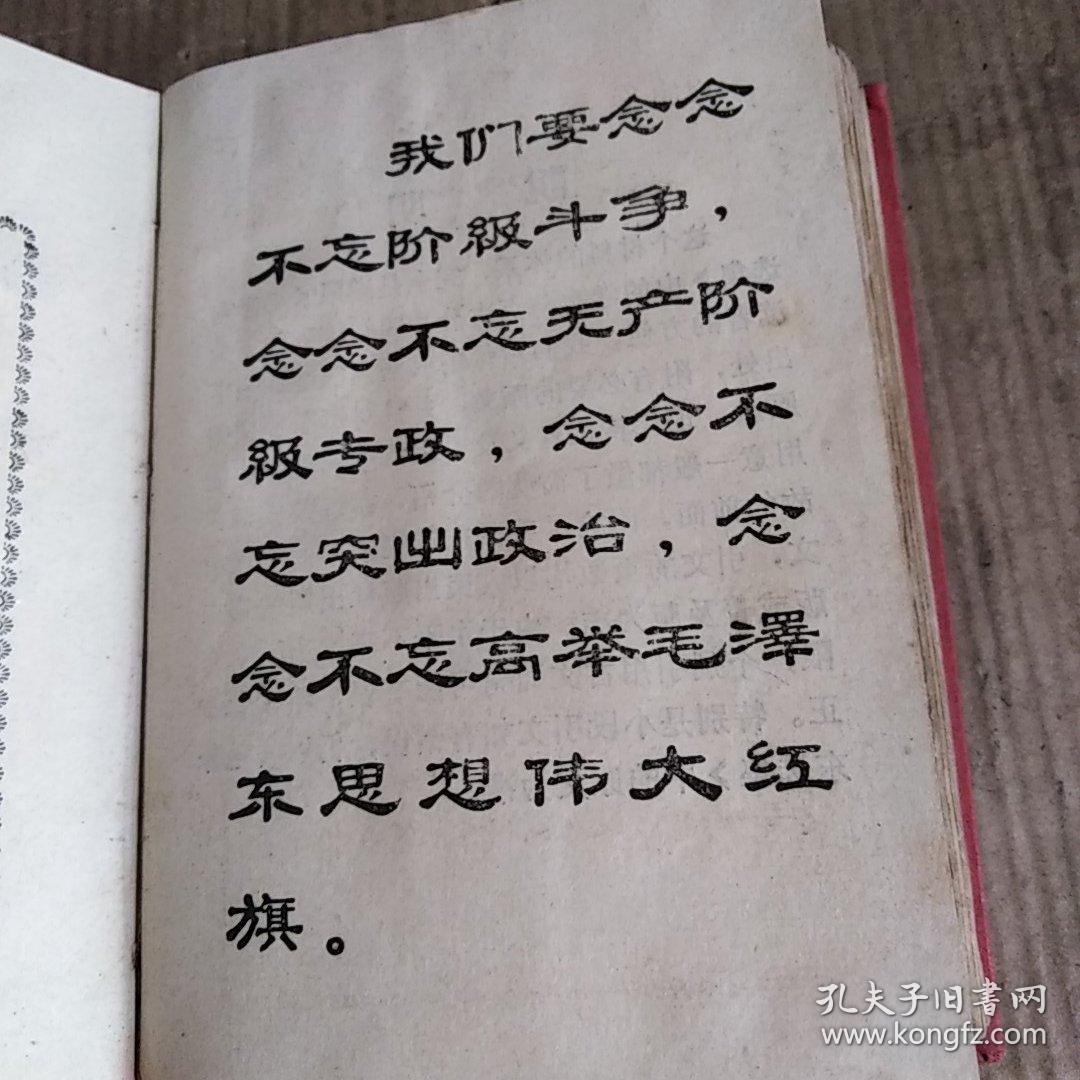 我们要念念
不忘阶級斗争，
念念不忘无产阶
級专政，念念不
忘突出政治，念
念不忘高举毛澤
东思想伟大红
旗。
孔夫子旧書网
www.kongfz.com